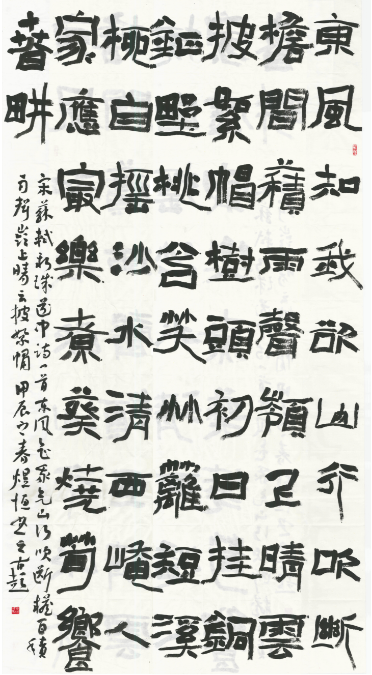 東風知我欲山行吹斷
檐間積雨聲嶺上晴雲
披絮帽樹頭初日挂銅
鉦野桃含笑竹籬短溪
柳自搖沙水清西崦人
家應最樂煮葵燒筍餉
春畊
宋蘇軾新城道中詩一首東風知我欲山行吹斷檐間積
雨聲嶺上晴雲披絮帽 甲辰之春煜恒書之